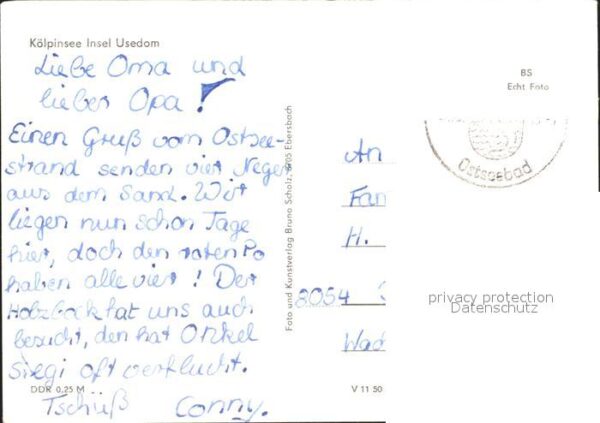 Kölpinsee Insel Usedom
Liebe Oma und
lieber Opa!
Einen Gruß vom Ostsee-
strand senden vier Neger
aus dem Sand. Wir
liegen nun schon Tage
hier, doch den roten Po
haben alle vier! Der
Holzbock hat uns auch
besucht, den hat Onkel
Siegi oft verflucht.
Tschüß Conny.
DDR 0,25 M
Foto und Kunstverlag Bruno Scholz, 8705 Ebersbach
V 11 50
BS
Echt Foto
Ostseebad
An
Fam
H.
8054
privacy protection
Datenschutz